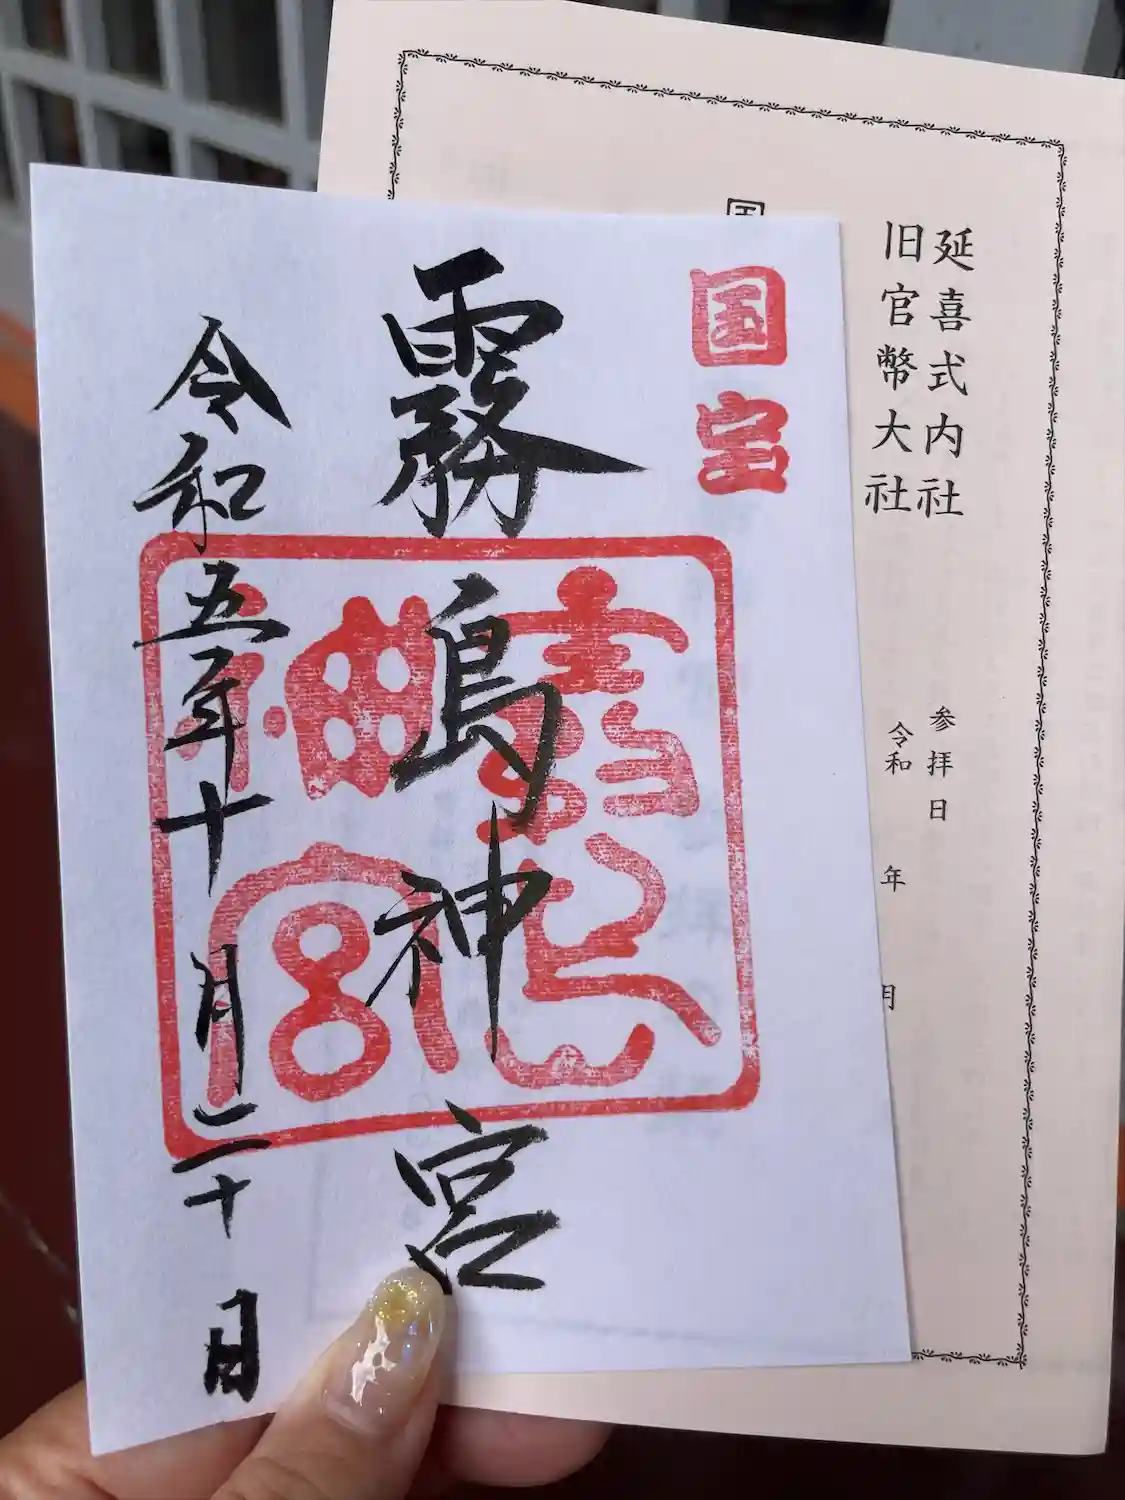 延喜式内社
旧官幣大社
参拝日
令和 年 月
国宝
霧島神宮
令和五年十月二十日
霧島神宮